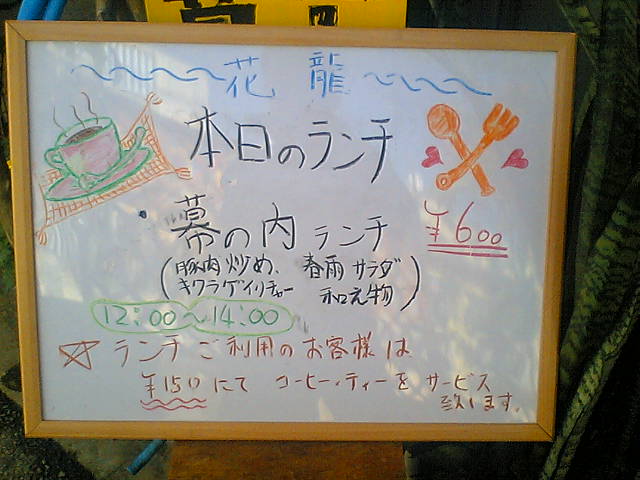 花龍
本日のランチ
幕の内ランチ ¥600
(豚肉炒め、春雨サラダ
キクラゲイリチャー 和え物)
12:00～14:00
☆ランチご利用のお客様は
¥150にてコーヒー・ティーをサービス
致します。